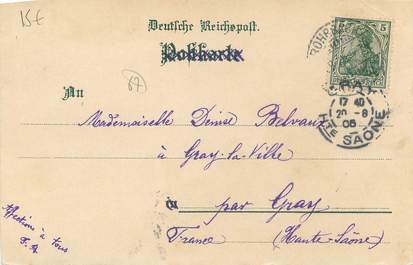 15€
Deutsche Reichspost.
Postkarte
5
67
An
17 40
20 -8
Hte SAÔNE
Mademoiselle Denise Belvaux
à Gray-la-Ville
par Gray
France (Haute-Saône)
Affections à tous